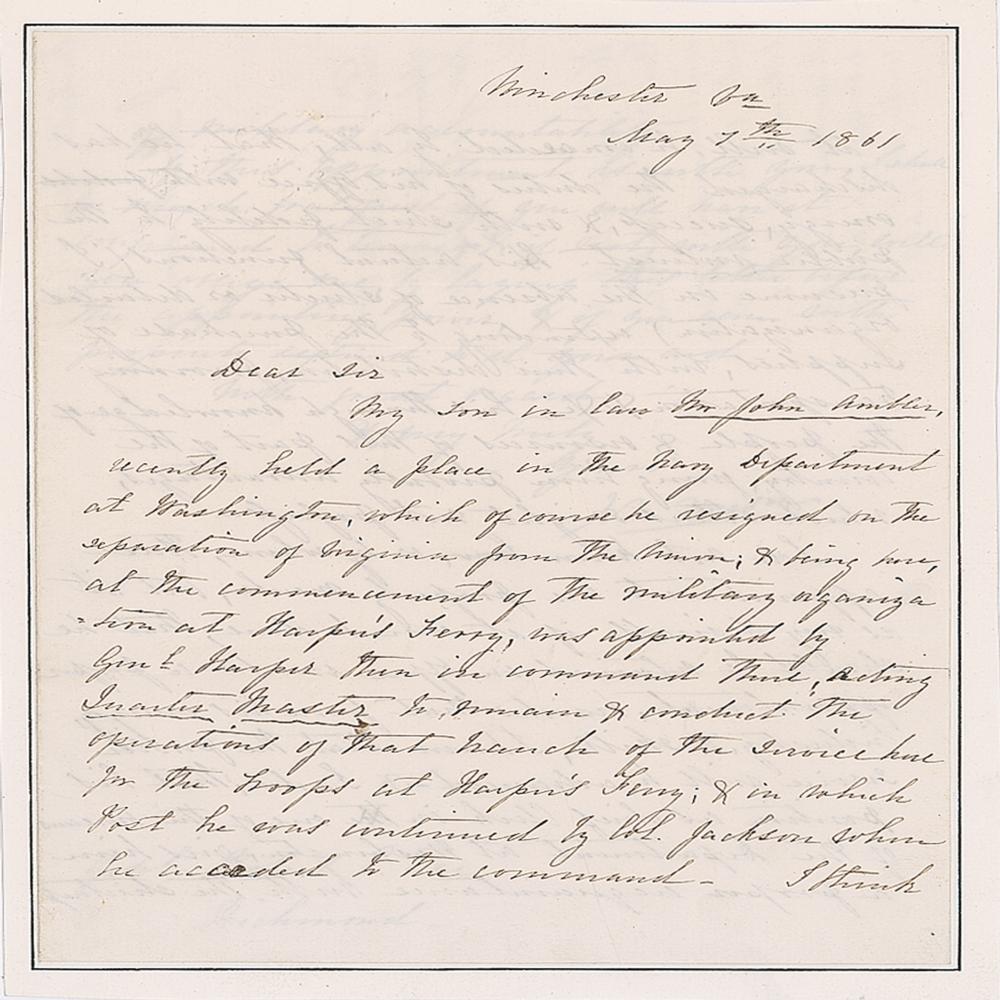 Winchester Va
May 7th 1861
Dear Sir
My son in law Mr John Ambler,
recently held a place in the Navy Department
at Washington, which of course he resigned on the
separation of Virginia from the Union; & being here,
at the commencement of the military organiza
-tion at Harper's Ferry, was appointed by
Genl Harper then in command there, acting
Quarter Master to remain & conduct the
operations of that branch of the service here
for the troops at Harper's Ferry; & in which
Post he was continued by Col. Jackson when
he acceded to the command - I think